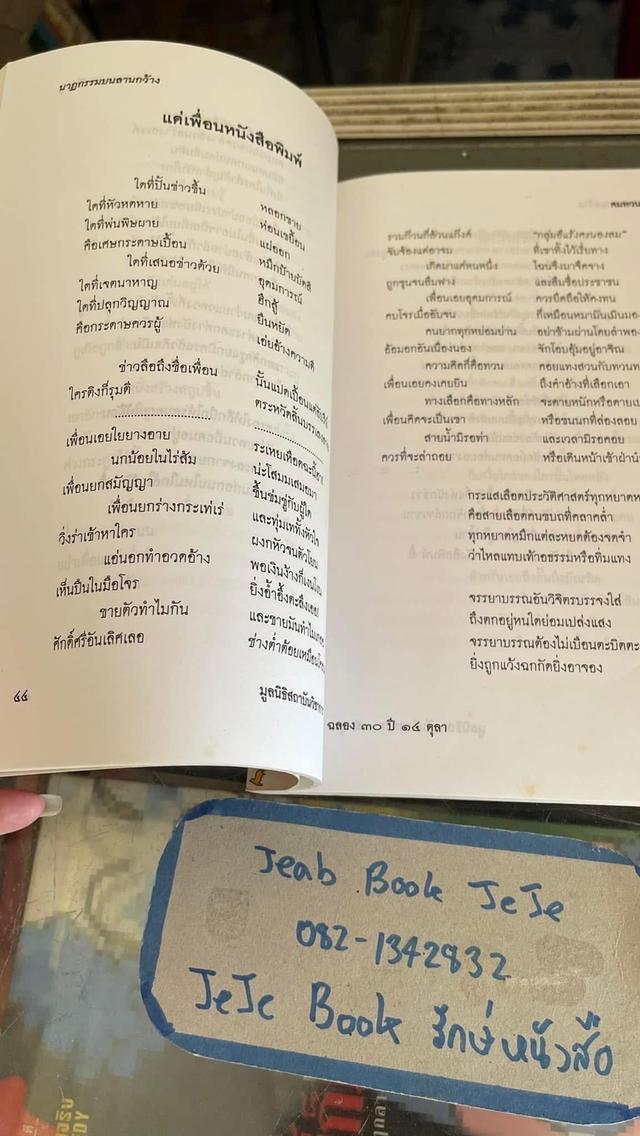 นาฏกรรมบนลานกว้าง
แด่เพื่อนหนังสือพิมพ์
ใดที่ปั้นข่าวขึ้น หลอกขาย
ใดที่หัวหดหาย ห่อนเขยื้อน
ใดที่พ่นพิษผาย แผ่ออก
คือเศษกระดาษเปื้อน หมึกป้ายบัดสี
ใดที่เสนอข่าวด้วย อุดมการณ์
ใดที่เจตนาหาญ ฮึกสู้
ใดที่ปลุกวิญญาณ ยืนหยัด
คือกระดาษควรผู้ เอ่ยอ้างความดี
ข่าวลือถึงชื่อเพื่อน
ใครติงก็รุมตี
เพื่อนเอยใยยางอาย
นกน้อยในไร่ส้ม น่ะโสมมเสมอมา
เพื่อนยกสมัญญา ขึ้นข่มขู่กับผู้ใด
เพื่อนยกร่างกระเท่เร่ และทุ่มเททั้งหัวใจ
วิ่งร่าเข้าหาใคร ผงกหัวจนตัวโยน
แอ่นอกทำอวดอ้าง พอเงินง้างก็เงนโงน
เห็นปืนในมือโจร ยิ่งอ้ำอึ้งตะลึงเอย
ขายตัวทำไมกัน
ศักดิ์ศรีอันเลิศเลอ
๔๔
คมทวน
รวมก๊วนก็อ้วนแก๊งค์
จับจ้องแต่อาจม ที่เขาทิ้งไว้เรี่ยทาง
เกิดมาแค่หนหนึ่ง โฉนจึงมาจืดจาง
ถูกขุนจนลืมฟาง และลืมชื่อประชาชน
เพื่อนเอยอุดมการณ์ ควรยึดถือให้คงทน
คบโจรเมื่ออับจน
คนยากทุกหย่อมย่าน
อ้อมอกอันเนืองนอง จักโอบอุ้มอยู่อาจิณ
ความคิดก็คือทวน
เพื่อนเอยคงเคยยิน ถึงคำอ้างที่เลือกเอา
ทางเลือกคือทางหลัก
เพื่อนคิดจะเป็นเขา หรือขนนกที่ล่องลอย
สายน้ำมิรอท่า และเวลามิรอคอย
ควรที่จะล่าถอย
กระแสเลือดประวัติศาสตร์ทุกหยาด
คือสายเลือดคนขบถที่คลาคล่ำ
ทุกหยาดหมึกแต่ละหยดต้องจดจำ
ว่าไหลแทบเท้าอธรรมหรือทิ่มแทง
จรรยาบรรณอันวิจิตรบรรจงใส่
ถึงตกอยู่หนใดย่อมเปล่งแสง
จรรยาบรรณต้องไม่เบือน
ยิ่งถูกแว้งฉกกัดยิ่งอาจอง
ฉลอง ๓๐ ปี ๑๔ ตุลา
Jeab Book JeJe
082-1342832
JeJe Book รักษ์หนังสือ